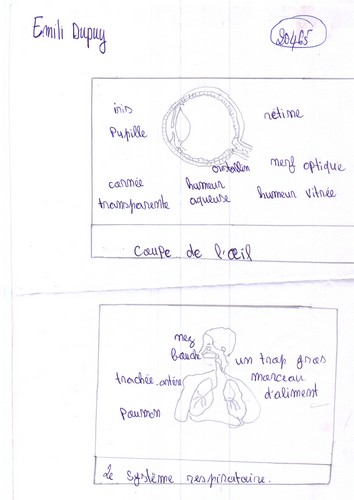 Emili Dupuy
20465
iris
rétine
Pupille
cristallin
nerf optique
cornée
humeur
humeur vitrée
transparente
aqueuse
coupe de l'œil
nez
bouche
un trop gros
morceau
d'aliment
trachée-artère
Poumon
Le système respiratoire.